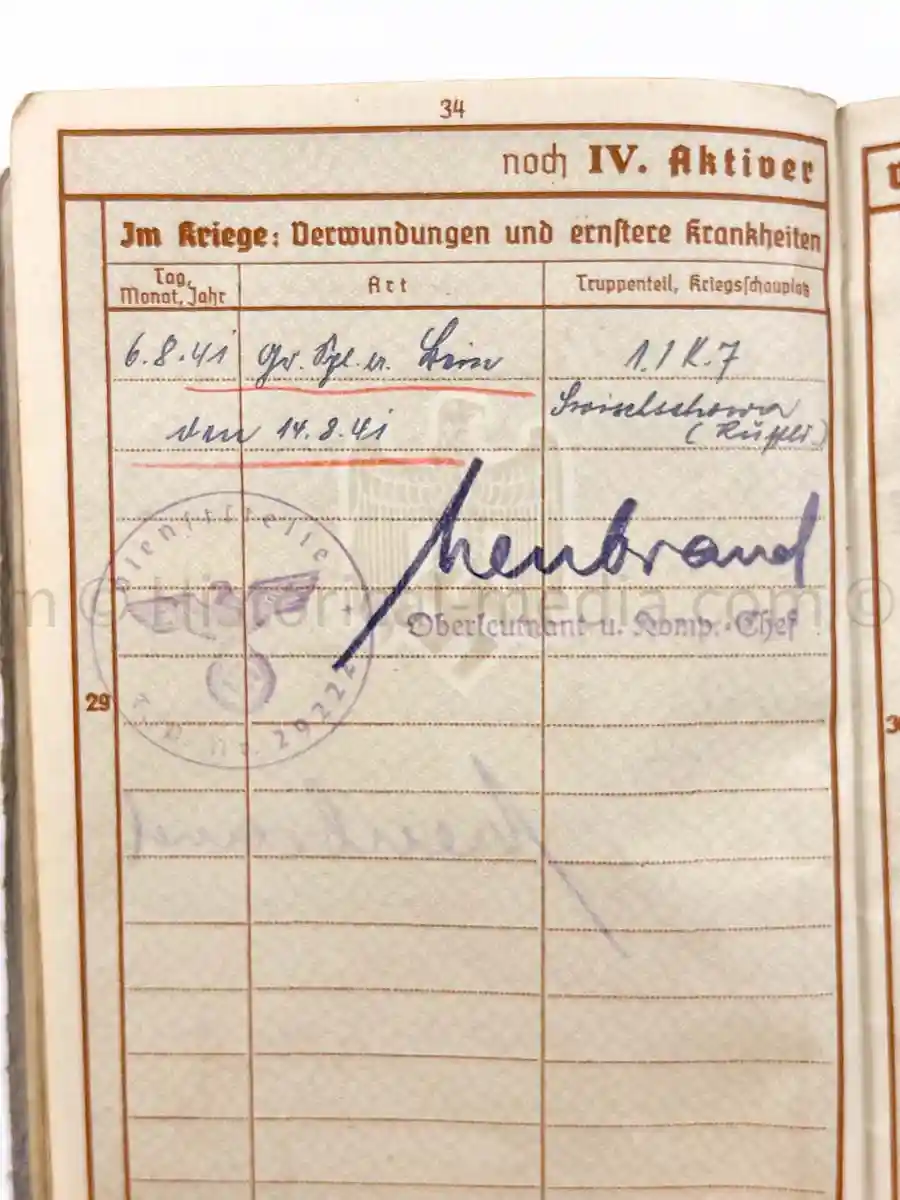 34
noch IV. Aktiver
Im Kriege: Verwundungen und ernstere Krankheiten
Tag, Monat, Jahr
Art
Truppenteil, Kriegsschauplatz
6.8.41 Gr. Spl. 1.IK.7
den 14.8.41
Dienststelle
F.P. Nr. 29222
Oberleutnant u. Komp.-Chef
© Historical-media.com ©
29